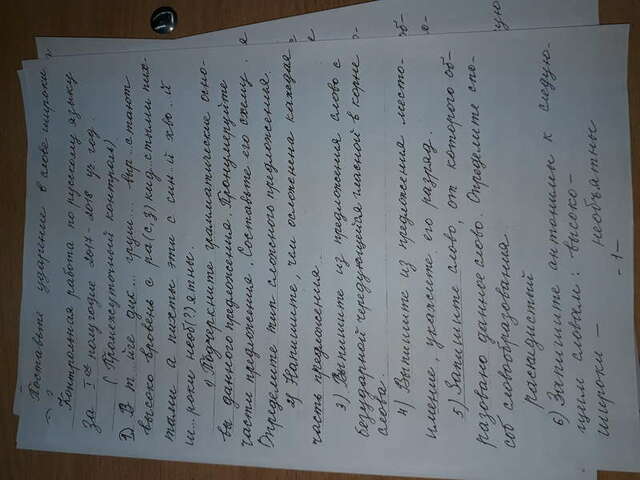 Поставьте ударение в слове широки
Контрольная работа по русскому языку
за I ое полугодие 2017-2018 уч. год.
(Промежсуточный контроль)
1) В т...йге дик... груш... выр...стают
высоко вровень с ра(с,з)кид...стыми пих-
тами а пихты эти с син...й хво...й
ш...роки необ(?)ятны.
1) Подчеркните грамматические осно-
вы данного предложения. Пронумеруйте
части предложения. Составьте его схему.
Определите тип сложного предложения.
2) Напишите, чем осложнена каждая
часть предложения.
3) Выпишите из предложения слово с
безударной чередующейся гласной в корне
слова.
4) Выпишите из предложения место-
имение, укажите его разряд.
5) Запишите слово, от которого об-
разовано данное слово. Определите спо-
соб словообразования.
раскидистый
6) Запишите антонимы к следую-
щим словам: высоко-
широки - необъятны
- 1 -